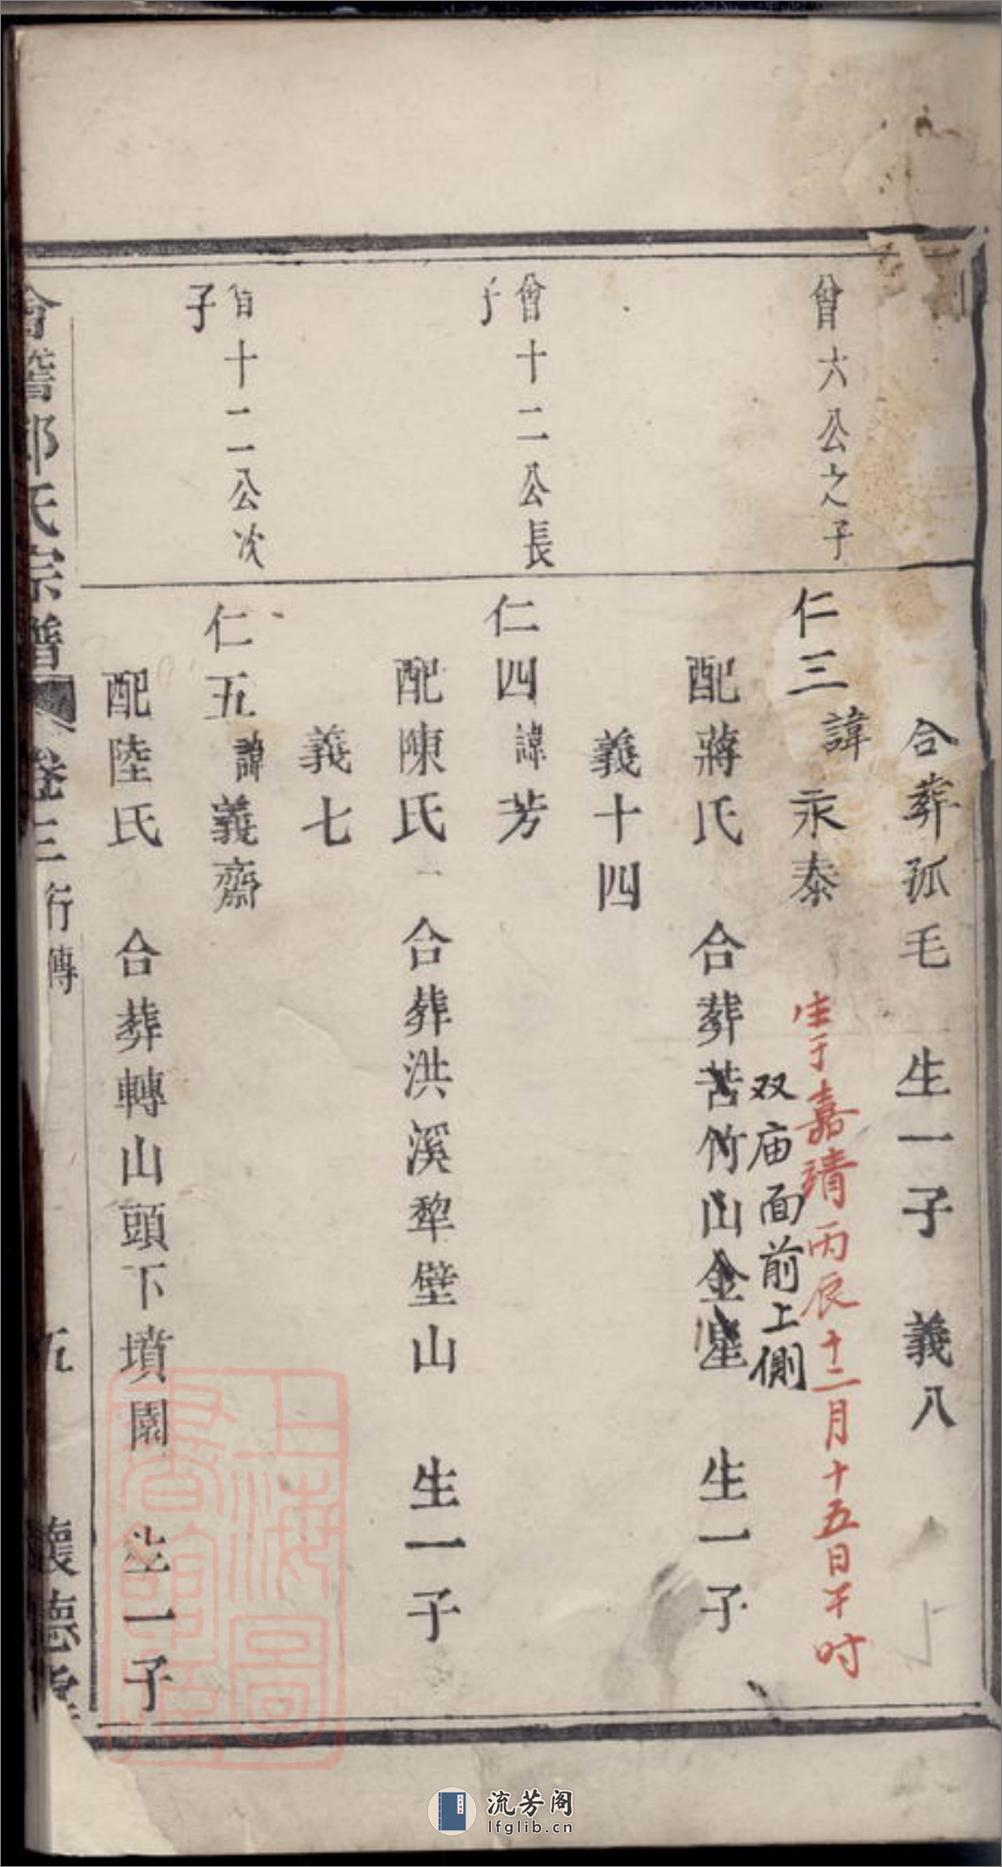 合葬孤毛　生一子　義八
曾六公之子
仁三諱永泰
生于嘉靖丙辰十二月十五日午时
双庙面前上侧
配蔣氏　合葬苦竹山金星　生一子
義十四
曾十二公長子
仁四諱芳
配陳氏　合葬洪溪犂壁山　生一子
義七
曾十二公次子
仁五諱義齋
配陸氏　合葬轉山頭下墳園　生一子
會稽邵氏宗譜　卷三　行傳　五　懷德堂
上海圖書館藏
流芳阁
lfglib.cn